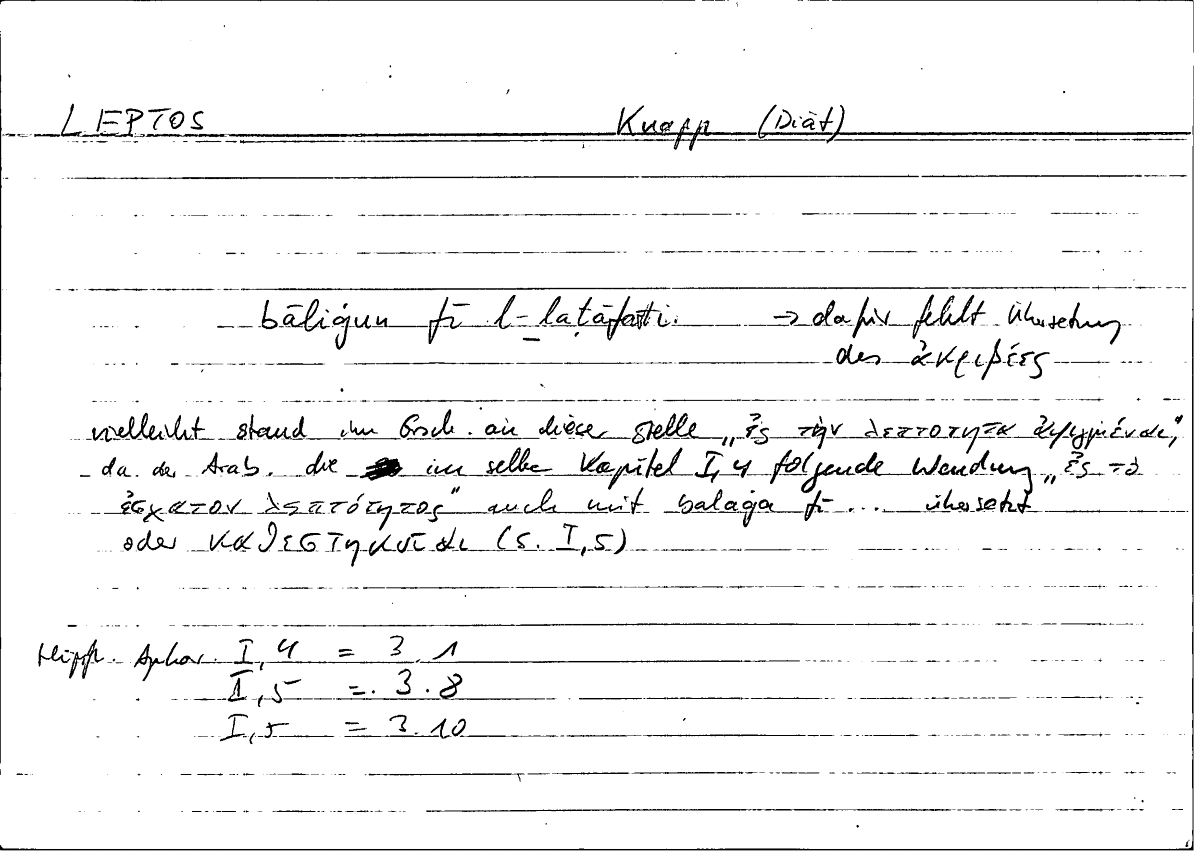 LEPTOS Knapp (Diät)
bāliġun fī l-laṭāfati. → dafür fehlt Übersetzung
des ἀκριβέες
vielleicht stand im Grch. an dieser Stelle „ἐς τὴν λεπτοτητα ἀφιγμέναι",
da der Arab. die im selbe Kapitel I,4 folgende Wendung „ἐς τὸ
ἔσχατον λεπτότητος" auch mit balaġa fī ... übersetzt
oder καθεστηκυῖαι (s. I,5)
Hippk. Aphor. I,4 = 3.1
I,5 = 3.8
I,5 = 3.10